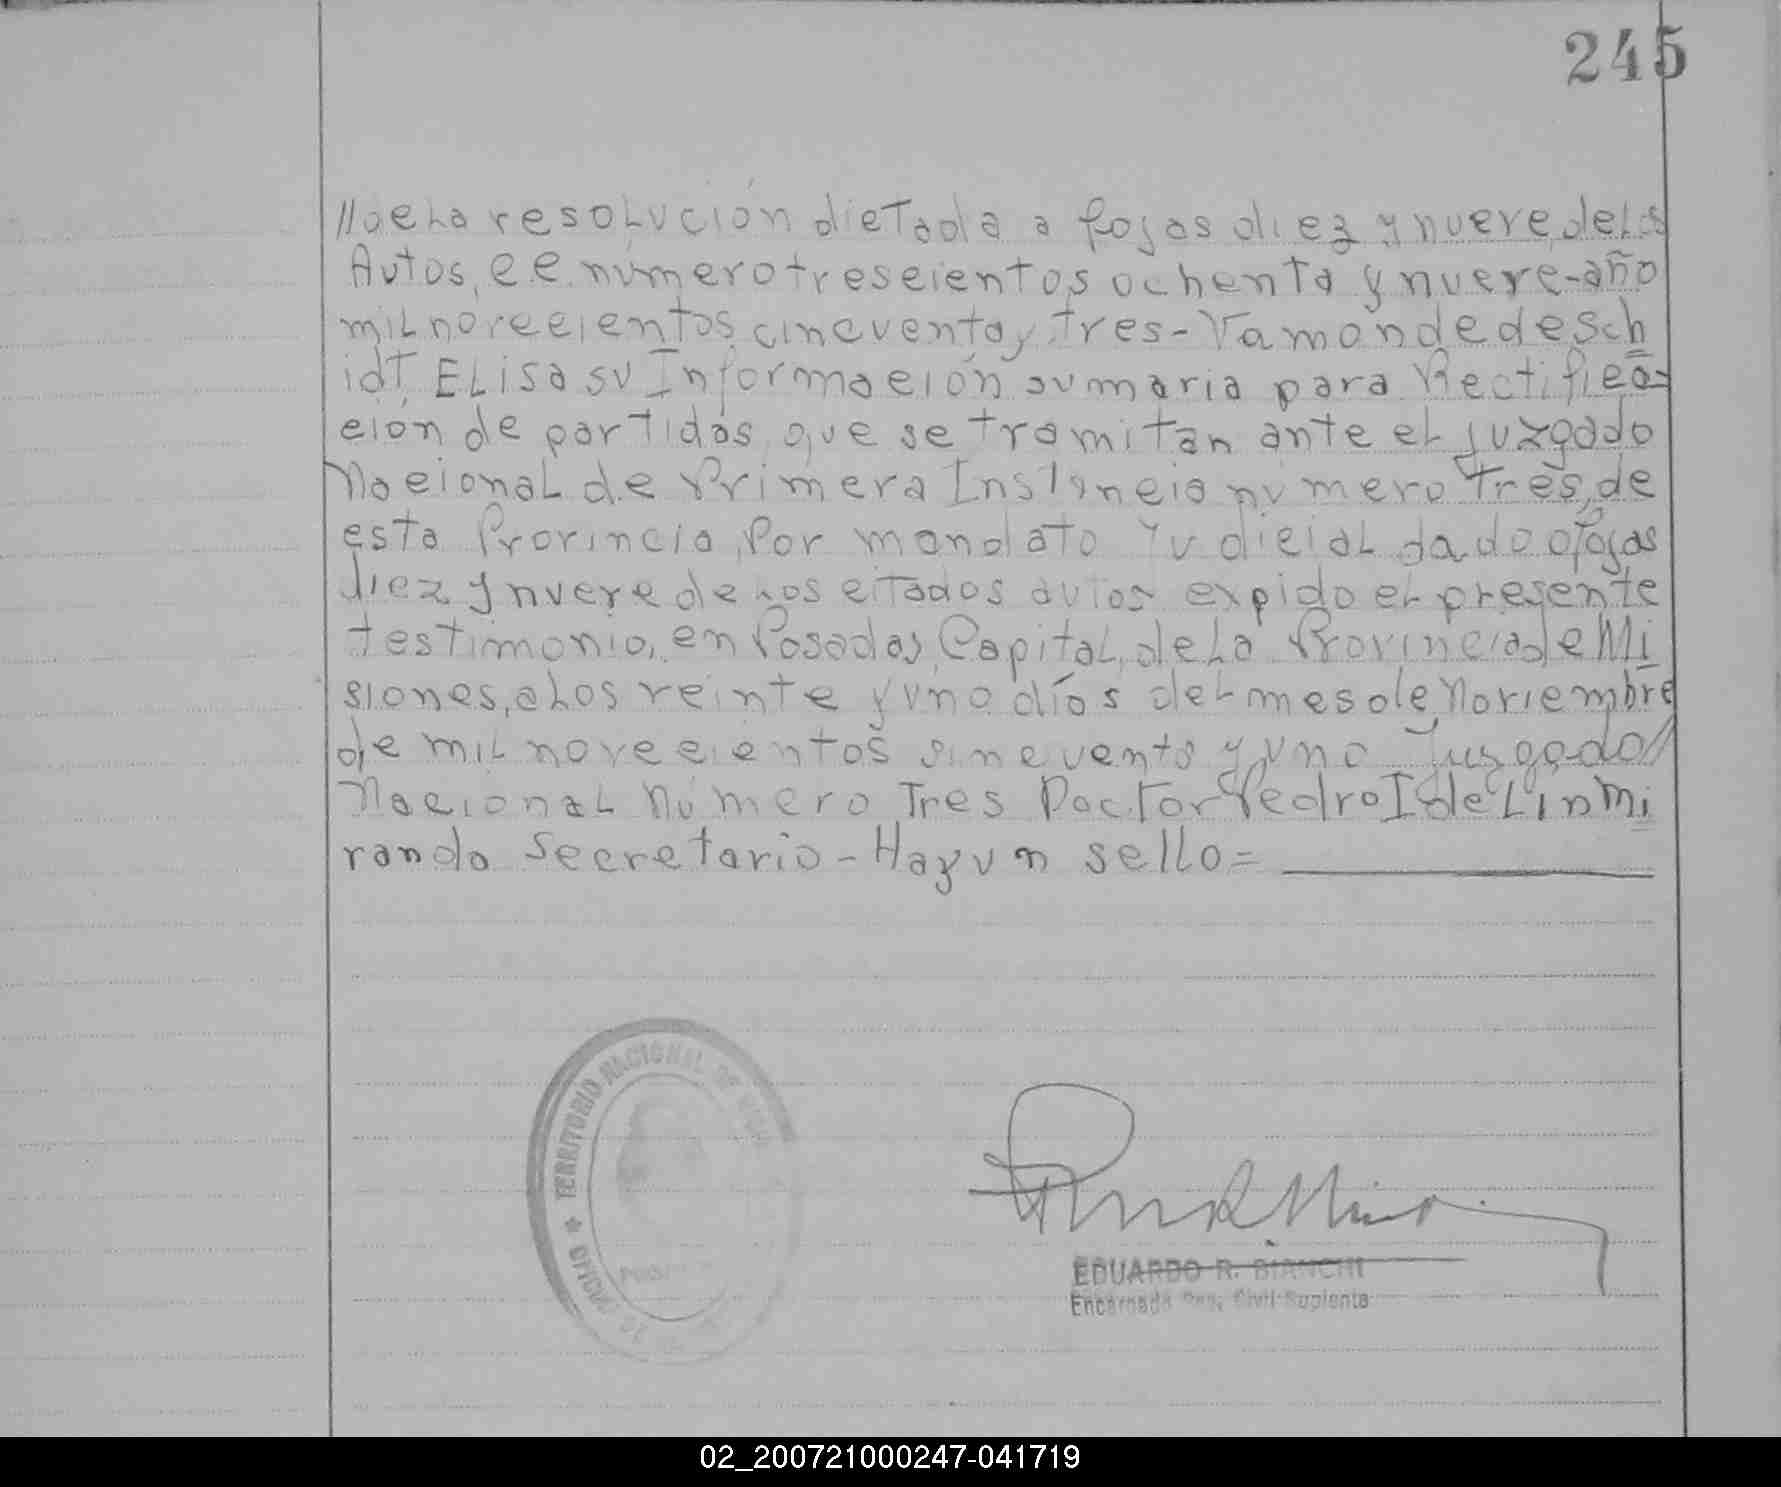 245
//de la resolución dictada a fojas diez y nueve, de los
Autos, e.e. número trescientos ochenta y nueve-año
mil novecientos cincuenta y tres-Vamonde de Sch
idt, Elisa su Información sumaria para Rectifica=
ción de partidas, que se tramitan ante el Juzgado
Nacional de Primera Instancia número Tres, de
esta Provincia, Por mandato Judicial dado a fojas
diez y nueve de los citados autos expido el presente
testimonio, en Posadas, Capital, de la Provincia de Mi
siones, a los veinte y uno días del mes de, Noviembre
de mil novecientos sincuenta y uno Juzgado//
Nacional Número Tres Doctor Pedro Idelin Mi
randa Secretario-Hay un sello=
TERRITORIO NACIONAL DE
EDUARDO R. BIANCHI
Encargado Reg. Civil Suplente
02_200721000247-041719